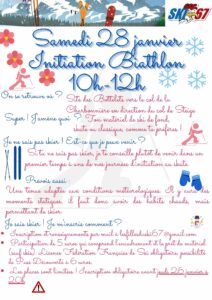 SKI 57
Samedi 28 janvier
Initiation Biathlon
10h-12h
On se retrouve où ?
Site des Bottelets vers le col de la
Charbonnière en direction du col de Steige
Super ! J'amène quoi ?
Ton matériel de ski de fond,
skate ou classique, comme tu préfères !
Je ne sais pas skier ! Est-ce que je peux venir ?
Si tu ne sais pas skier, je te conseille plutôt de venir dans un
premier temps à une de nos journées d'initiation au skate.
Prévois aussi :
Une tenue adaptée aux conditions météorologiques. Il y aura des
moments statiques, il faut donc avoir des habits chauds, mais
permettant de skier.
Je sais skier ! Je m'inscris comment ?
Inscription et renseignements par mail à
Participation de 5 euros qui comprend l'encadrement et le prêt de matériel
(sauf skis) Licence Fédération Française de Ski obligatoire, possibilité
de Pass Découverte à 6 euros.
Les places sont limitées ! Inscription obligatoire avant jeudi 26 janvier à
20h